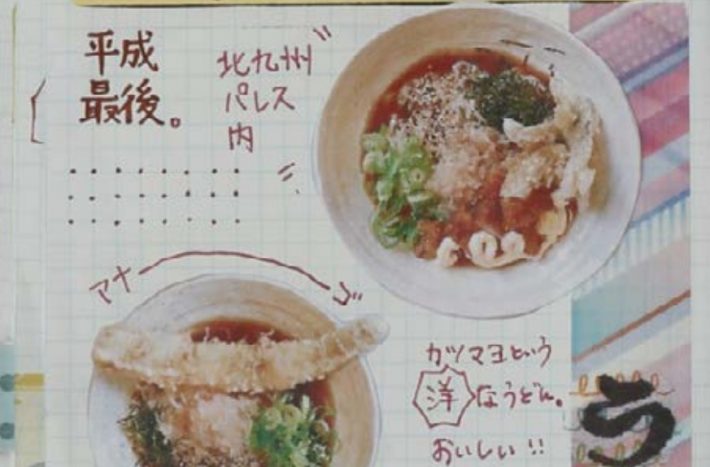 平成
最後。
北九州
パレス
内
アナ
カツマヨという
洋なうどん。
おいしい!!
う